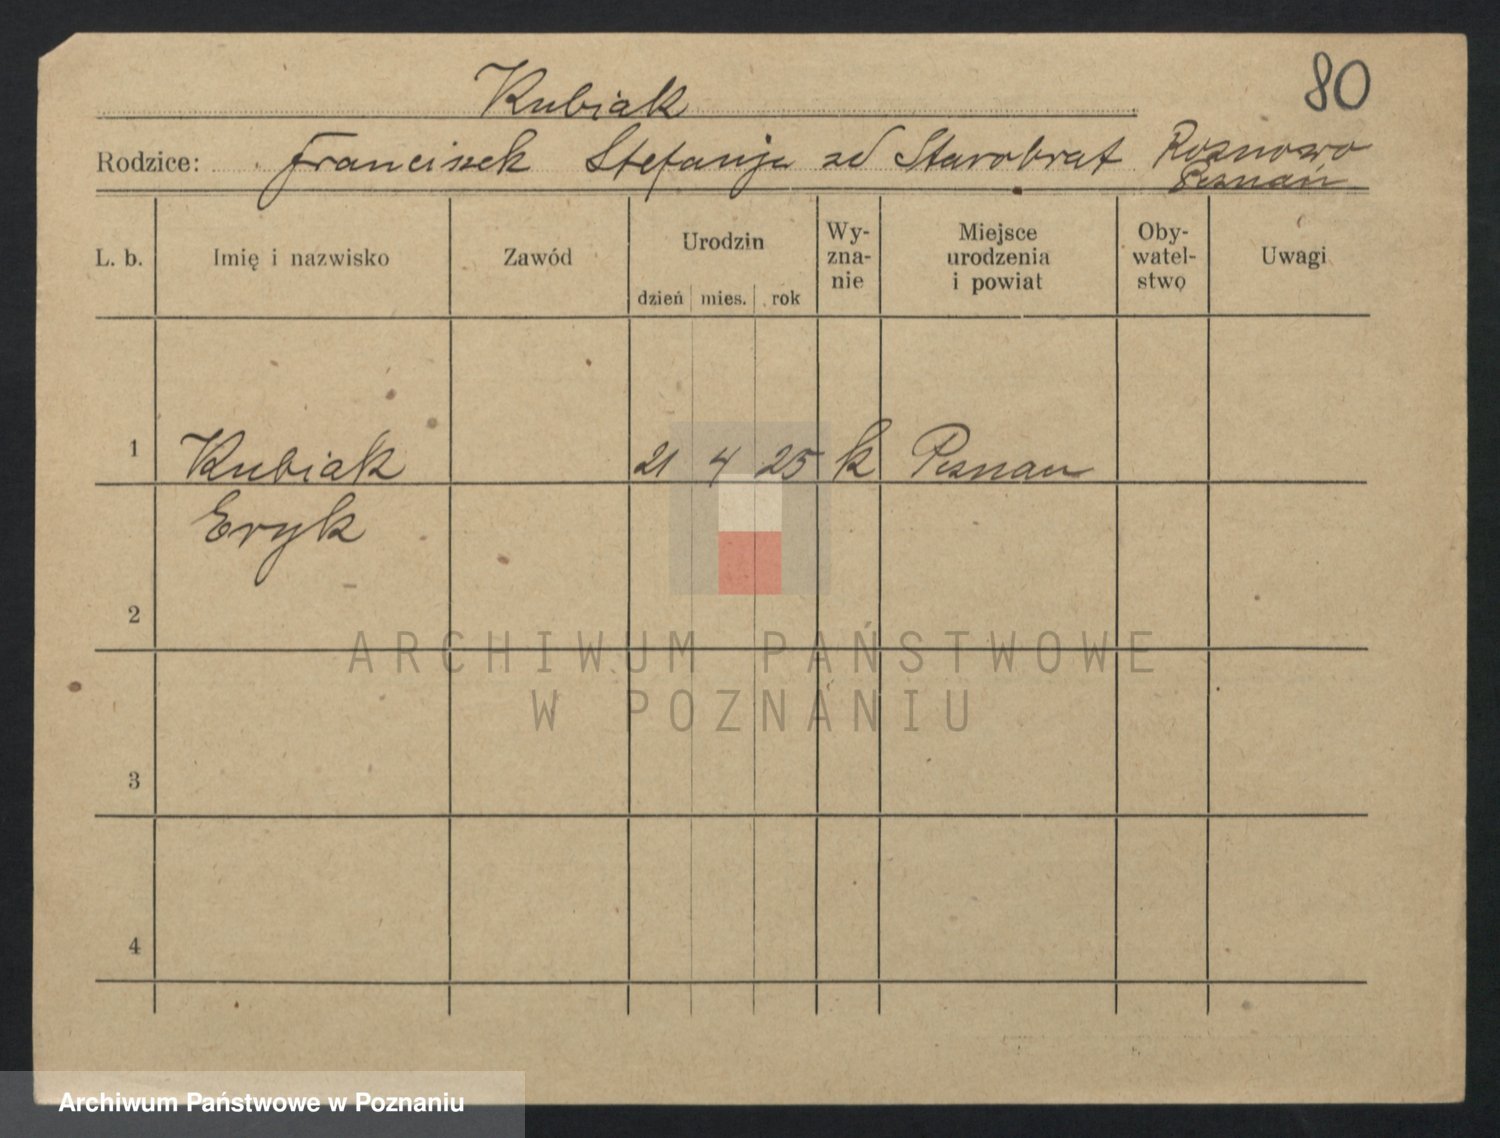 80
Kubiak
Rodzice: Franciszek Stefanja zd Starobrat Rosnowo
Poznań
L. b. Imię i nazwisko Zawód Urodzin dzień mies. rok Wy-zna-nie Miejsce urodzenia i powiat Oby-watel-stwo Uwagi
1 Kubiak 21 4 25 k Poznan
Eryk
2
3
4
ARCHIWUM PAŃSTWOWE
W POZNANIU
Archiwum Państwowe w Poznaniu